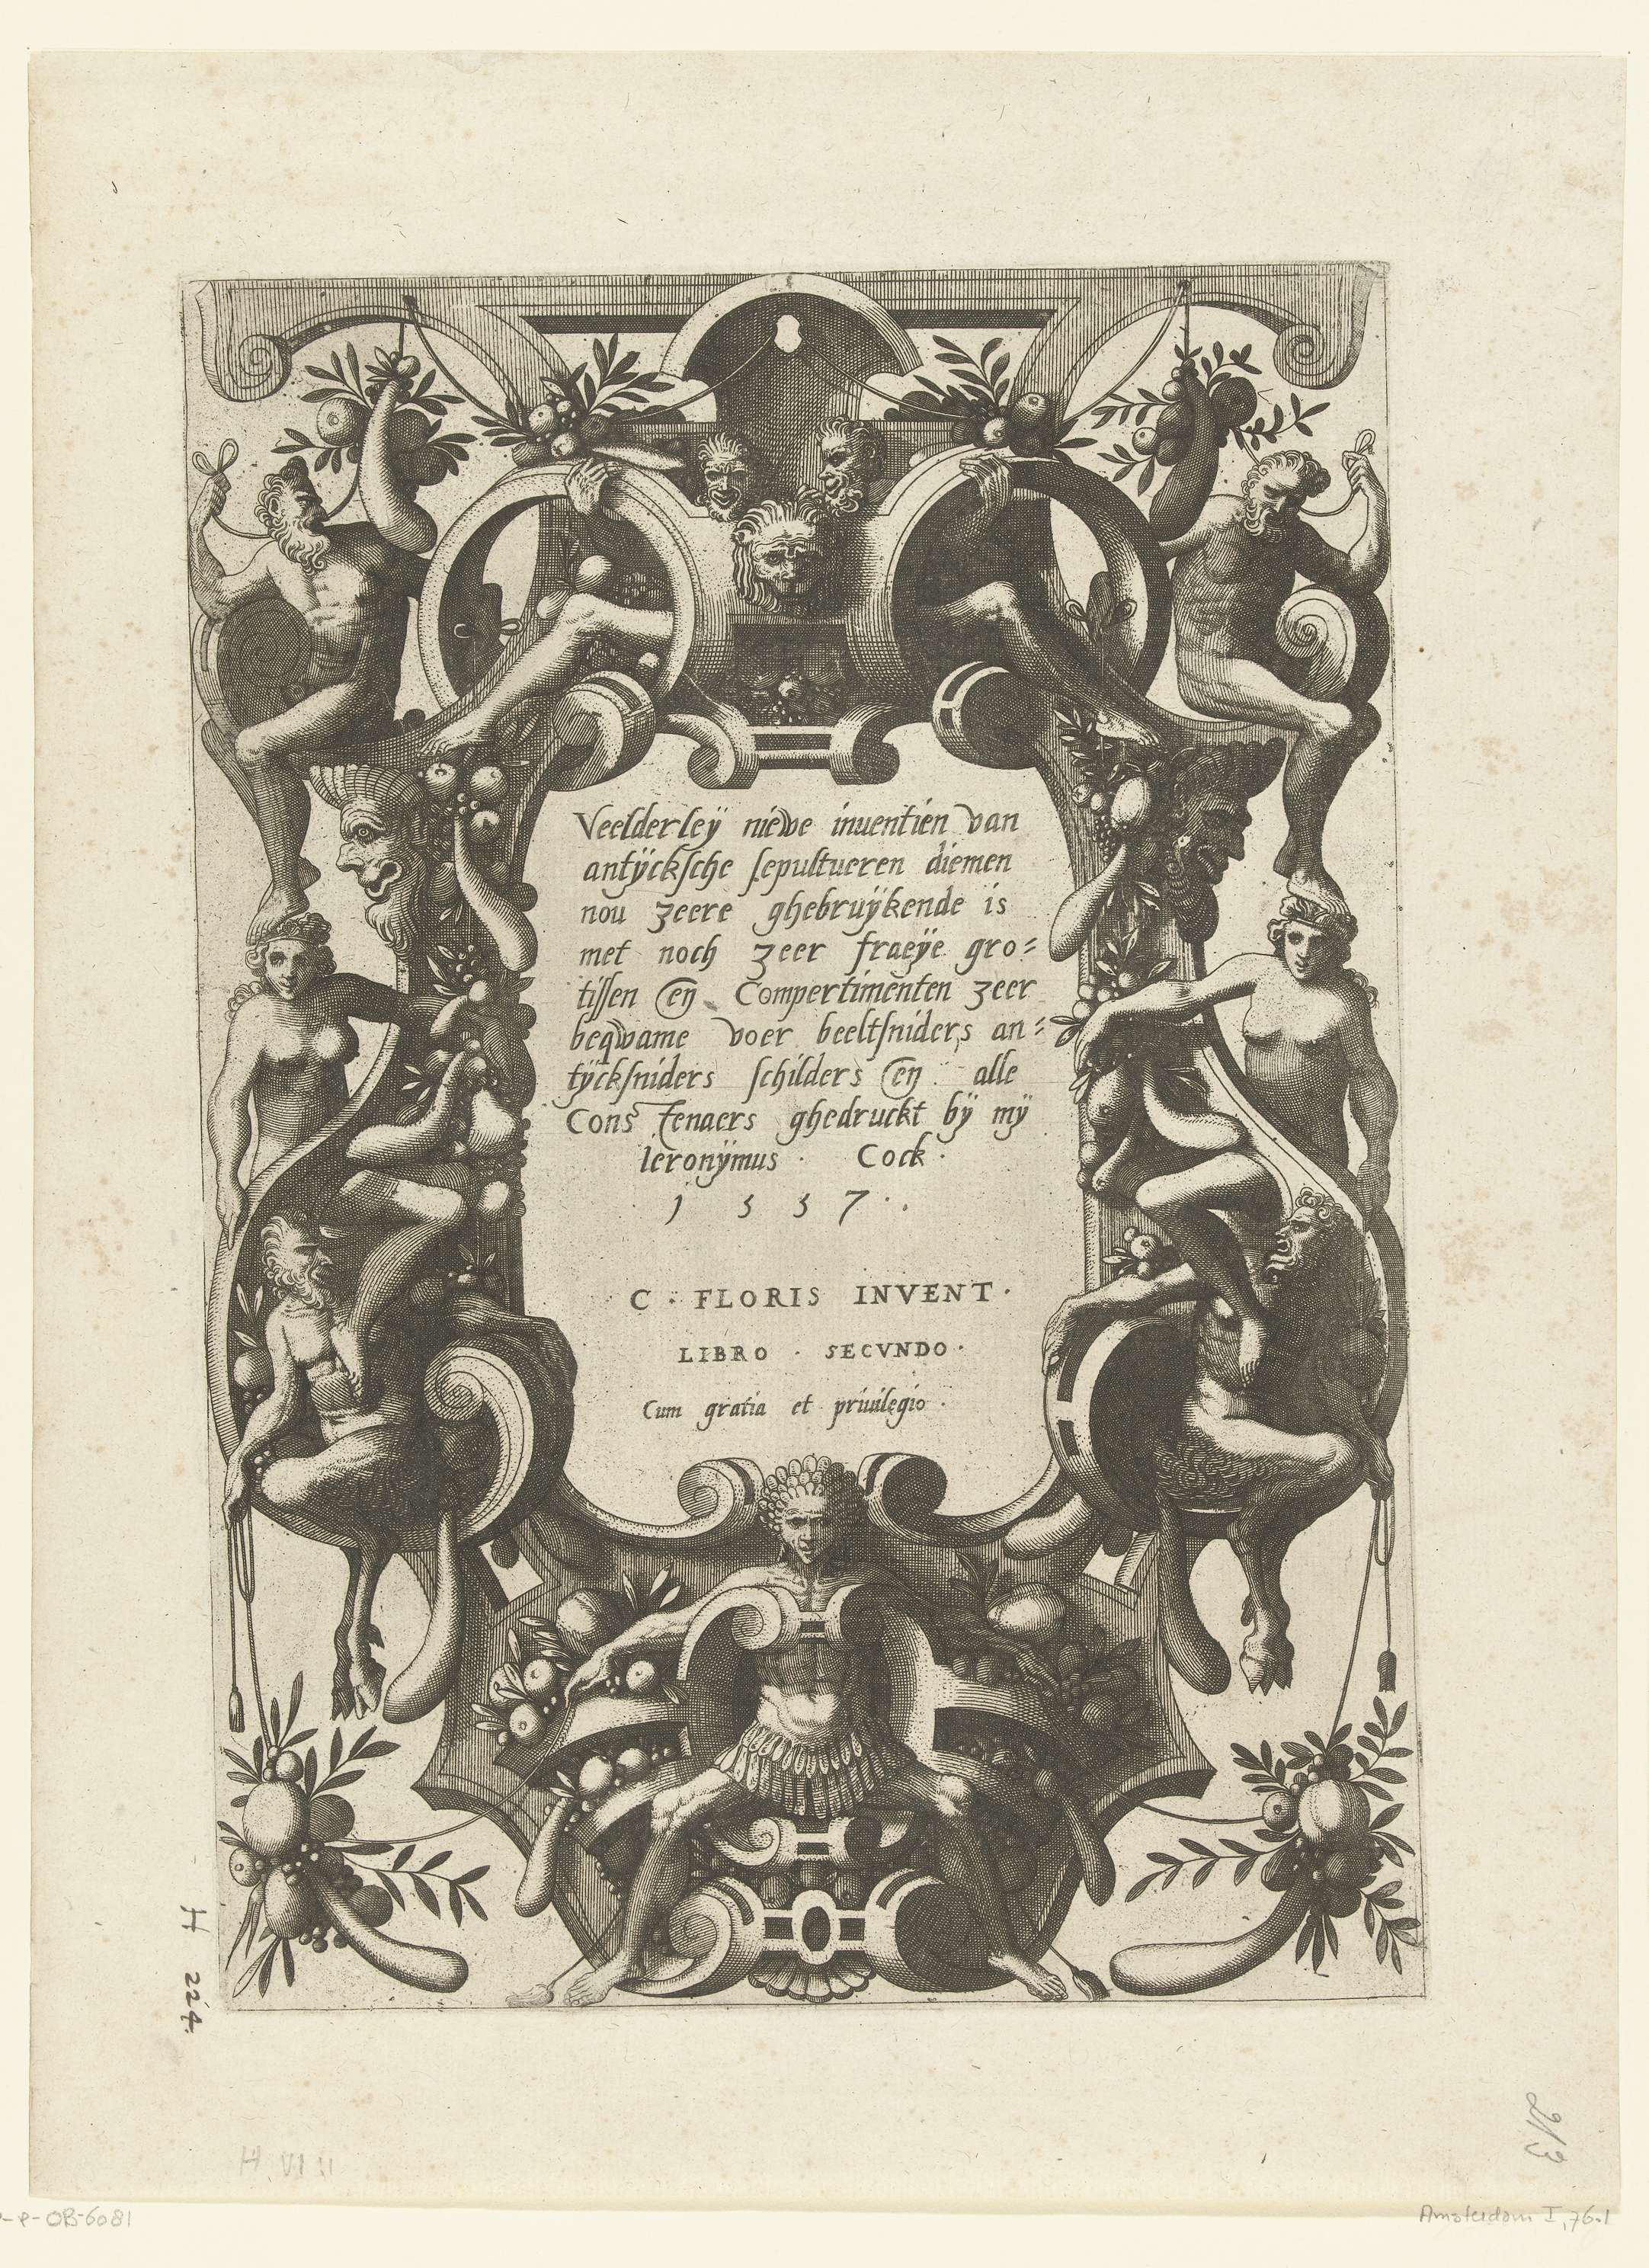 Veelderleÿ niewe inuentien van
antÿcksche sepultueren diemen
nou zeere ghebruÿkende is
met noch zeer fraeÿe gro=
tissen en Compertimenten zeer
beqwame voer beeltsniders an=
tÿcksniders schilders en alle
Constenaers ghedruckt bÿ mÿ
Ieronÿmus · Cock ·
1 5 5 7 ·
C · FLORIS INVENT ·
LIBRO · SECVNDO ·
Cum gratia et priuilegio ·
H 224.
213
H. VI 11
-P-OB-6081
Amsterdam I, 76.1